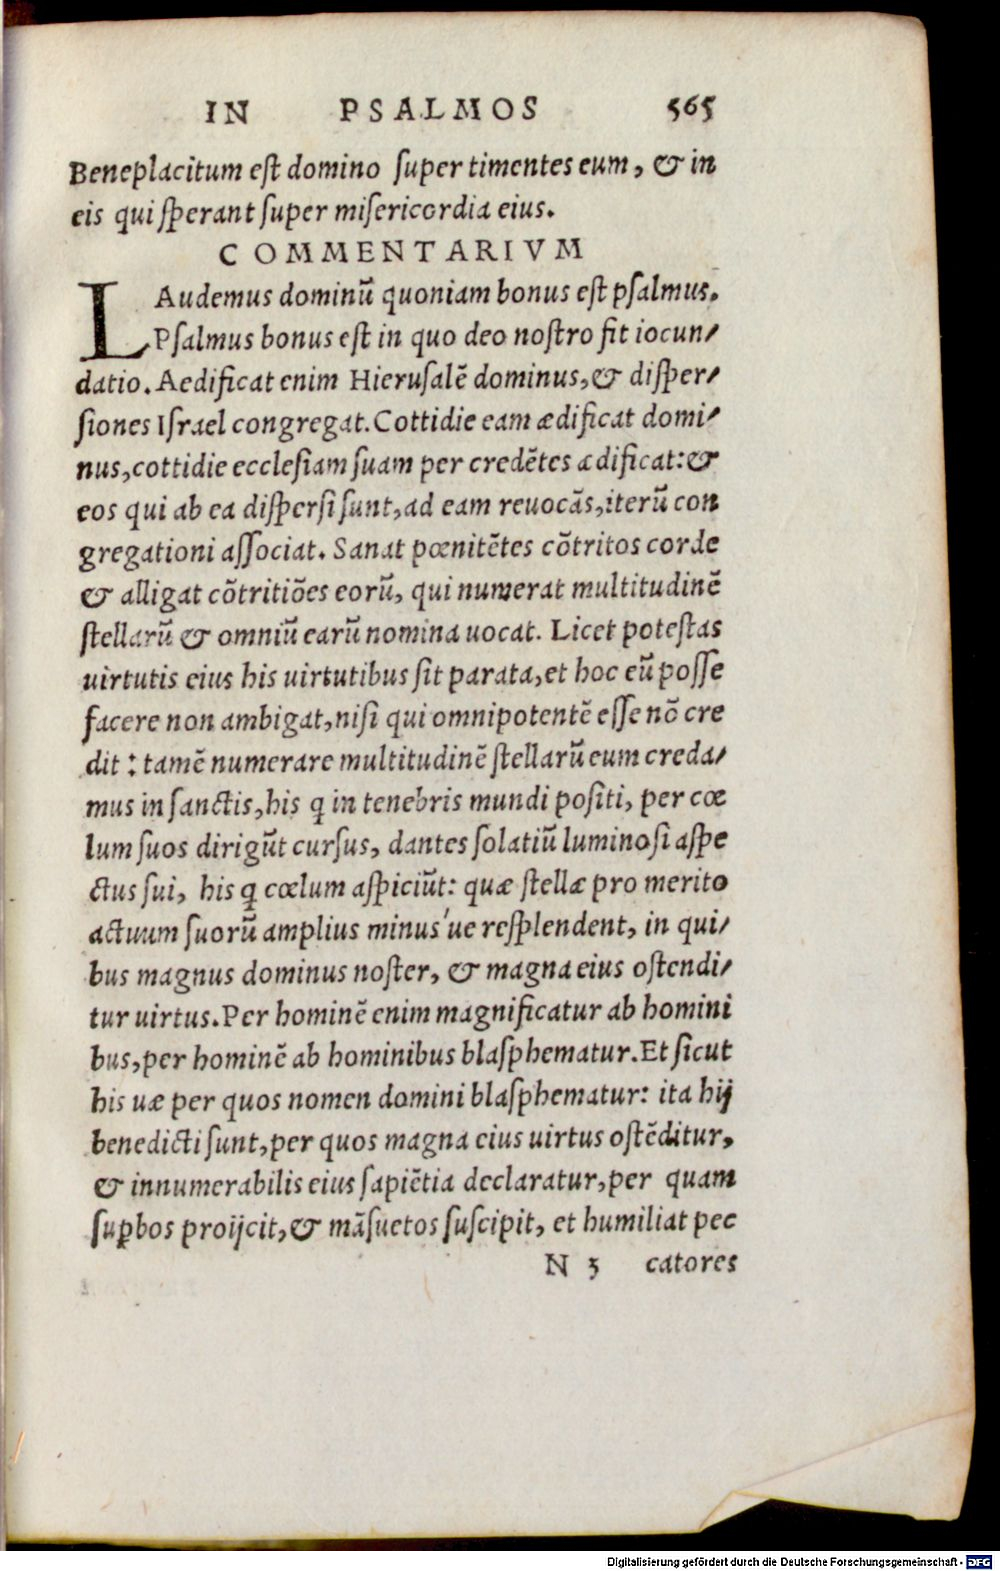 IN PSALMOS 565
Beneplacitum eſt domino ſuper timentes eum, & in
eis qui ſperant ſuper miſericordia eius.
COMMENTARIVM
LAudemus dominū quoniam bonus eſt pſalmus.
Pſalmus bonus eſt in quo deo noſtro fit iocun/
datio. Aedificat enim Hieruſalē dominus, & diſper/
ſiones Iſrael congregat. Cottidie eam ædificat domi/
nus, cottidie eccleſiam ſuam per credētes ædificat: &
eos qui ab ea diſperſi ſunt, ad eam reuocās, iterū con
gregationi aſſociat. Sanat pœnitētes cōtritos corde
& alligat cōtritiōes eorū, qui numerat multitudinē
ſtellarū & omniū earū nomina uocat. Licet poteſtas
uirtutis eius his uirtutibus ſit parata, et hoc eū poſſe
facere non ambigat, niſi qui omnipotentē eſſe nō cre
dit: tamē numerare multitudinē ſtellarū eum creda/
mus in ſanctis, his q̄ in tenebris mundi poſiti, per cœ
lum ſuos dirigūt curſus, dantes ſolatiū luminoſi aſpe
ctus ſui, his q̄ cœlum aſpiciūt: quæ ſtellæ pro merito
actuum ſuorū amplius minus'ue reſplendent, in qui/
bus magnus dominus noſter, & magna eius oſtendi/
tur uirtus. Per hominē enim magnificatur ab homini
bus, per hominē ab hominibus blaſphematur. Et ſicut
his uæ per quos nomen domini blaſphematur: ita hij
benedicti ſunt, per quos magna eius uirtus oſtēditur,
& innumerabilis eius ſapiētia declaratur, per quam
ſuꝑbos proijcit, & māſuetos ſuſcipit, et humiliat pec
N 3 catores
Digitalisierung gefördert durch die Deutsche Forschungsgemeinschaft - DFG